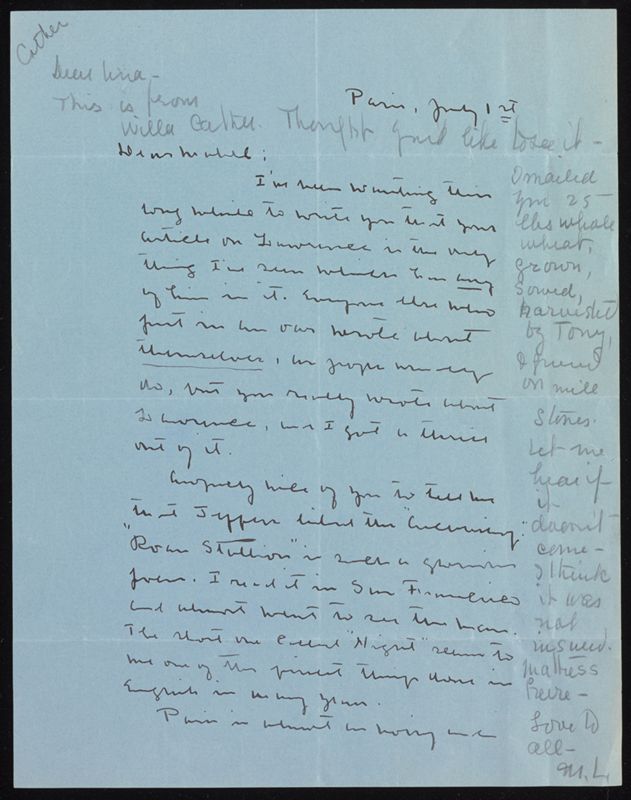 Cather
Dear Una –
This is from
Willa Cather. Thought you'd like to see it –
Paris, July 1st
Dear Mabel:
I've been wanting this
long while to write you that your
article on Lawrence is the only
thing I've seen which has any
of him in it. Everyone else who
put in an oar wrote about
themselves, as people usually
do, but you really wrote about
Lawrence, and I got a thrill
out of it.
Awfully nice of you to tell me
that Jeffers liked the
"Roan Stallion" is such a glorious
poem. I read it in San Francisco
and almost went to see the man.
The short one called "Night" seems to
me one of the finest things done in
English in many years.
Paris is almost as noisy as
I mailed
you 25
lbs whole
wheat,
grown,
sowed,
harvested
by Tony,
& ground
on mill
stones.
Let me
hear if
it
doesn't
come –
I think
it was
not
insured.
mattress
here –
Love to
all –
M. L.